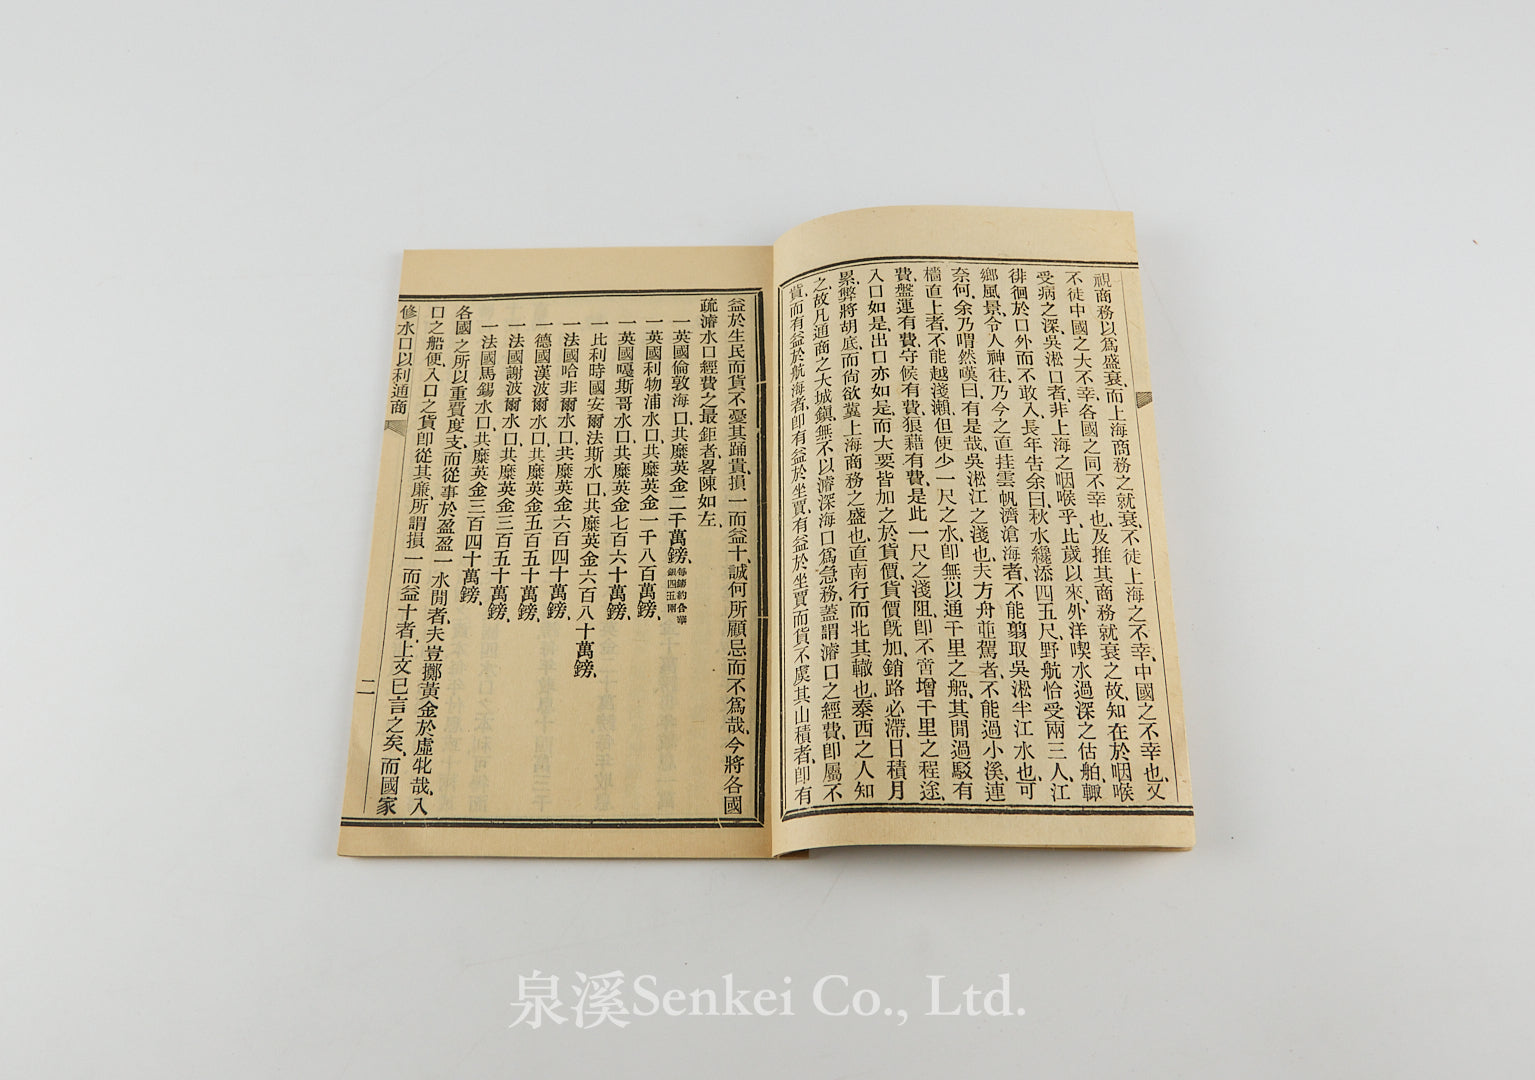 視商務以爲盛衰、而上海商務之就衰、不徒上海之不幸、中國之不幸也、又
不徒中國之大不幸、各國之同不幸也、及推其商務就衰之故、知在於咽喉
受病之深、吳淞口者、非上海之咽喉乎、比歲以來、外洋喫水過深之估舶、輙
徘徊於口外而不敢入、長年告余曰、秋水纔添四五尺、野航恰受兩三人、江
鄉風景、令人神往、乃今之直挂雲帆濟滄海者、不能翦取吳淞半江水也、可
奈何、余乃喟然嘆曰、有是哉、吳淞江之淺也、夫方舟並駕者、不能過小溪、連
檣直上者、不能越淺瀨、但使少一尺之水、卽無以通千里之船、其閒過駁有
費、盤運有費、守候有費、狼藉有費、是此一尺之淺阻、卽不啻增千里之程途、
入口如是、出口亦如是、而大要皆加之於貨價、貨價旣加、銷路必滯、日積月
累、弊將胡底、而尙欲冀上海商務之盛也、直南行而北其轍也、泰西之人知
之、故凡通商之大城鎭、無不以濬深海口爲急務、蓋謂濬口之經費、卽屬不
貲、而有益於航海者、卽有益於坐賈、有益於坐賈而貨不虞其山積者、卽有
益於生民而貨不憂其踊貴、損一而益十、誠何所顧忌而不爲哉、今將各國
疏濬水口經費之最鉅者、畧陳如左、
一英國倫敦海口、共糜英金二千萬鎊、每鎊約合華銀四五兩
一英國利物浦水口、共糜英金一千八百萬鎊、
一英國嘎斯哥水口、共糜英金七百六十萬鎊、
一比利時國安爾法斯水口、共糜英金六百八十萬鎊、
一法國哈非爾水口、共糜英金六百四十萬鎊、
一德國漢波爾水口、共糜英金五百五十萬鎊、
一法國謝波爾水口、共糜英金三百五十萬鎊、
一法國馬錫水口、共糜英金三百四十萬鎊、
各國之所以重費度支、而從事於盈盈一水閒者、夫豈擲黃金於虛牝哉、入
口之船便、入口之貨卽從其廉、所謂損一而益十者、上文已言之矣、而國家
修水口以利通商
二
泉溪Senkei Co., Ltd.